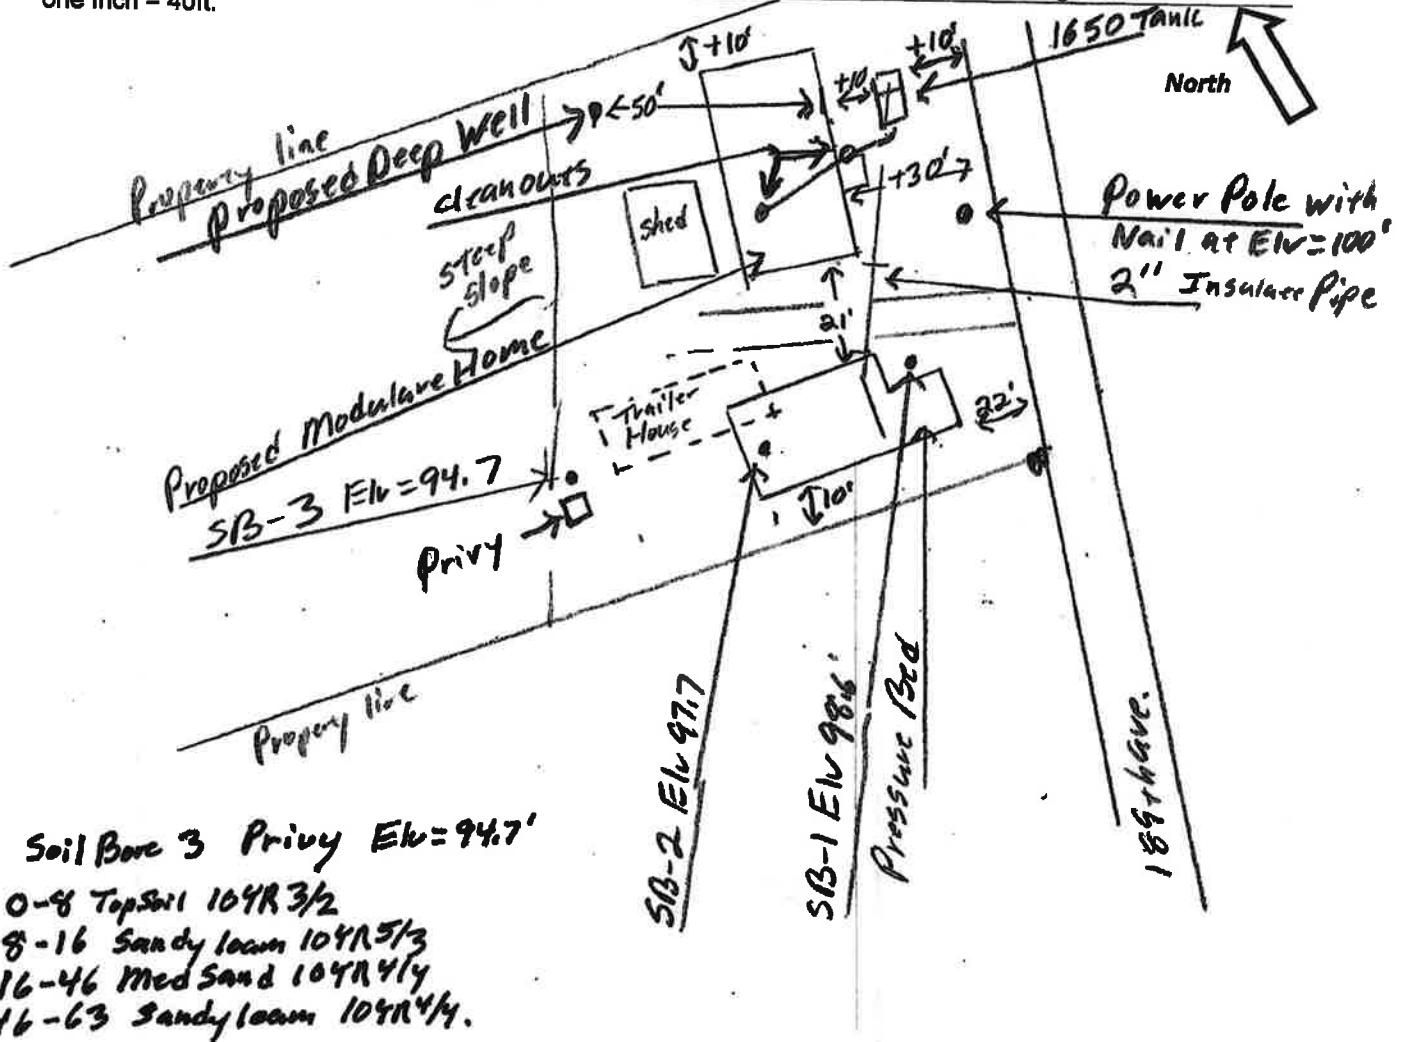 one inch = 40ft.
+10'
+10'
1650 Tank
North
+10
←50'
Property line
Proposed Deep Well
cleanouts
shed
+30'
Power Pole with
Nail at Elv=100'
2" Insulate Pipe
steep
slope
21'
Proposed Modulare Home
Trailer
House
22'
SB-3 Elv=94.7
10'
Privy
Propery line
SB-2 Elv 97.7
SB-1 Elv 98.6'
Pressure Bed
189th ave.
Soil Bore 3 Privy Elv=94.7'
0-8 Topsoil 10YR 3/2
8-16 Sandy loam 10YR 5/3
16-46 Med Sand 10YR 4/4
46-63 Sandy loam 10YR 4/4.